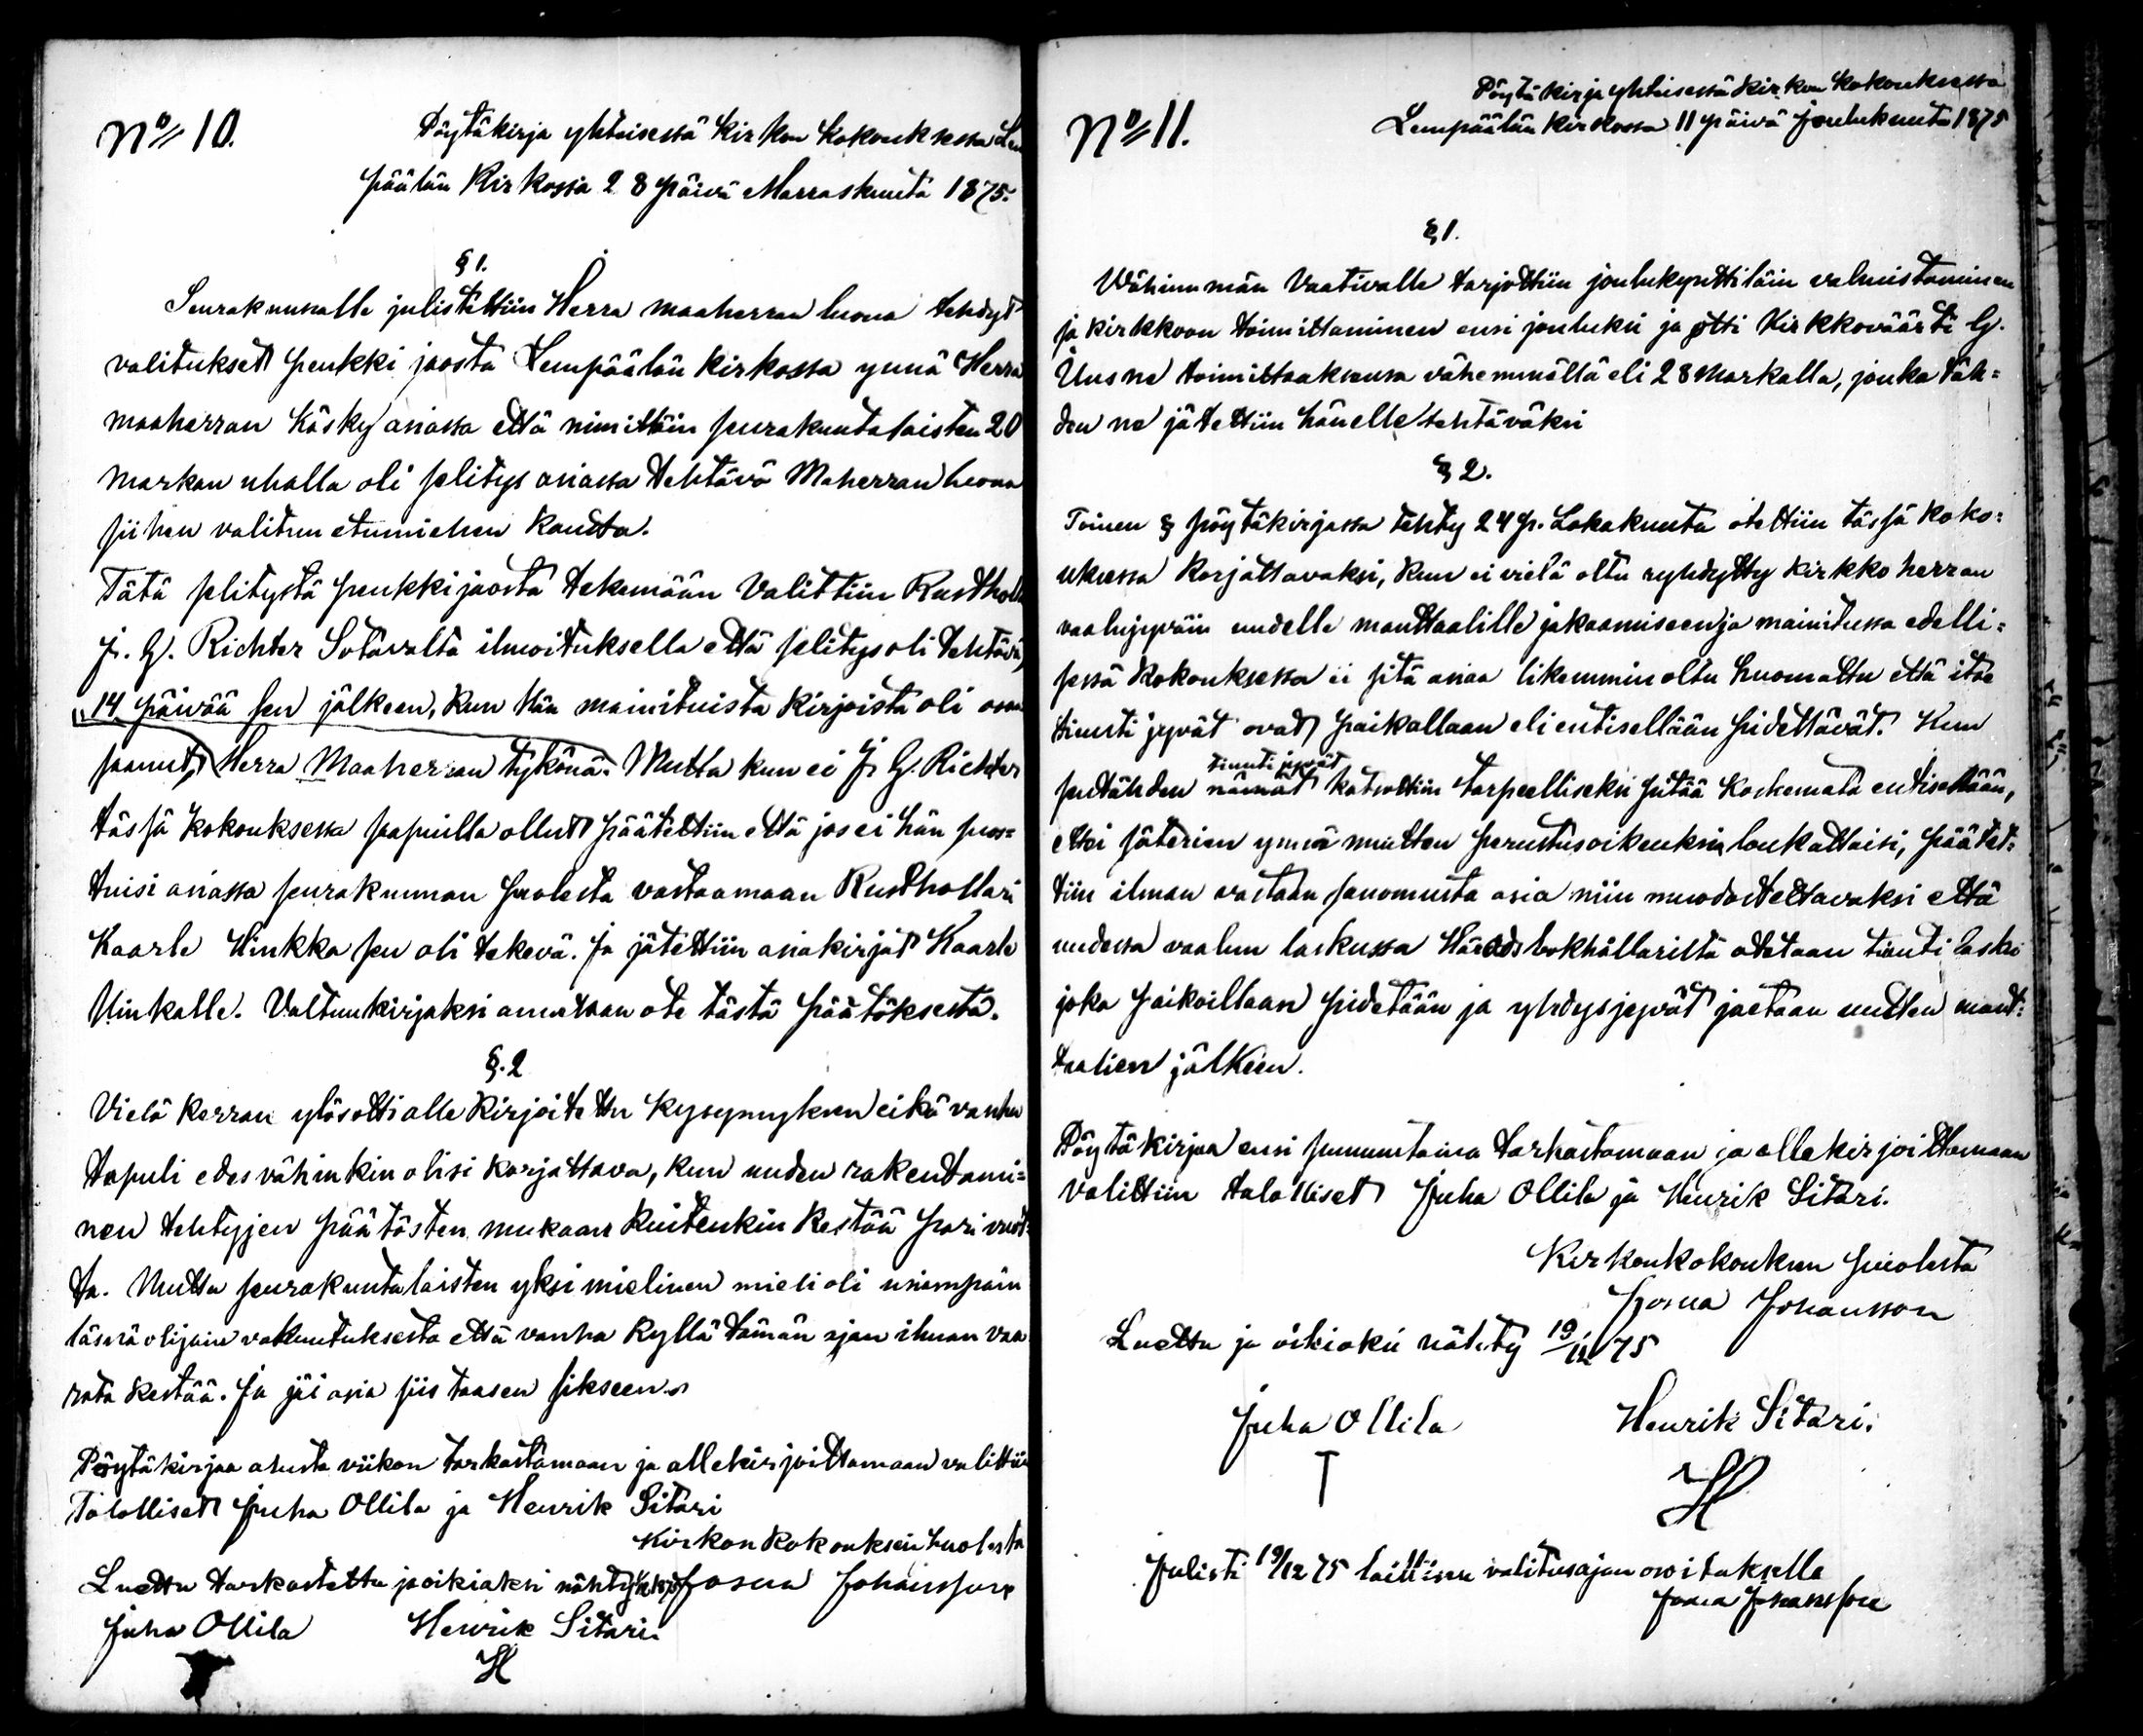 No 10.
Pöytäkirja yhteisessä kirkon kokouksessa Lem
päälän Kirkossa 28 päivä Marraskuuta 1875.
§ 1.
Seurakunnalle julistettiin Herra maaherran luona tehdyt
valitukset penkki jaosta Lempäälän kirkossa ynnä Herra
maaherran käsky asiassa että nimittäin seurakuntalaisten 20
markan uhalla oli selitys asiassa tehtävä Maherran luona
siihen valitun etumiehen kautta.
Tätä selitystä penkkijaosta tekemään valittiin Rusthol
J. G. Richter Sotavalta ilmoituksella että selitys oli tehtävä
14 päivää sen jälkeen, kun hän mainituista kirjoista oli osan
saanut, Herra Maaherran tykönä. Mutta kun ei J. G. Richter
tässä kokouksessa saapuilla ollut päätettiin että jos ei hän suos=
tuisi asiassa seurakunnan puolesta vastaamaan Rusthollari
Kaarle Hinkka sen oli tekevä. Ja jätettiin asiakirjat Kaarle
Hinkalle. Valtuukirjaksi annetaan ote tästä päätöksestä.
§. 2
Vielä kerran ylösotti allekirjoitettu kysymyksen eikö vanha
tapuli edes vähinkin olisi korjattava, kun uuden rakentami=
nen tehtyjen päätösten mukaan kuitenkin kestää pari vuot=
ta. Mutta seurakuntalaisten yksimielinen mieli oli useampain
läsnäolijain vakuutuksesta että vanha kyllä tämän ajan ilman vaa
rata kestää. Ja jäi asia siis taasen sikseen.
Pöytäkirjaa alusta viikon tarkastamaan ja allekirjoittamaan valittiin
Talolliset Juha Ollila ja Henrik Sitari
Kirkon kokouksen puolesta
Luettu tarkastettu ja oikiaksi nähty Josua Johansson
Juha Ollila Henrik Sitari
H
No 11.
Pöytäkirja yhteisessä kirkon kokouksessa
Lempäälän Kirkossa 11 päivä Joulukuuta 1875
§ 1.
Vähimmän Vaativalle tarjottiin joulukynttiläin valmistaminen
ja kirkkoon toimittaminen ensi jouluksi ja otti Kirkkoväärti G.
Uusne toimittaaksensa vähemmällä eli 28 Markalla, jonka täh=
den ne jätettiin hänelle tehtäväksi
§ 2.
Toinen § pöytäkirjassa tehty 24 p. Lokakuuta otettiin tässä koko=
uksessa korjattavaksi, kun ei vielä oltu ryhdytty kirkkoherran
vaalujyväin uudelle manttaalille jakaamiseen ja mainitussa edelli=
sessä kokouksessa ei sitä asiaa likemmin oltu huomattu että itse
tiunti jyvät ovat paikallaan eli entisellään pidettävät. Kun
tiunti jyvät
sentähden nämät katsottiin tarpeelliseksi pitää koskemata entisellään,
ettei säterien ynnä muitten perustusoikeuksia loukattaisi, päätet=
tiin ilman vastaan sanomusta asia niin muodostettavaksi että
uudessa vaalun laskussa Häradsbokhållarilta otetaan tiunti lasku
joka paikoillaan pidetään ja yhdysjyvät jaetaan uutten mant=
taalien jälkeen.
Pöytäkirjaa ensi sunnuntaina tarkastamaan ja allekirjoittamaan
valittiin talolliset Juha Ollila ja Henrik Sitari.
Kirkonkokouksen puolesta
Josua Johansson
Luettu ja oikiaksi nähty 19/12 75
Juha Ollila Henrik Sitari.
T H
Julisti 19/12 75 laillisen valitusajan osoituksella
Josua Johansson